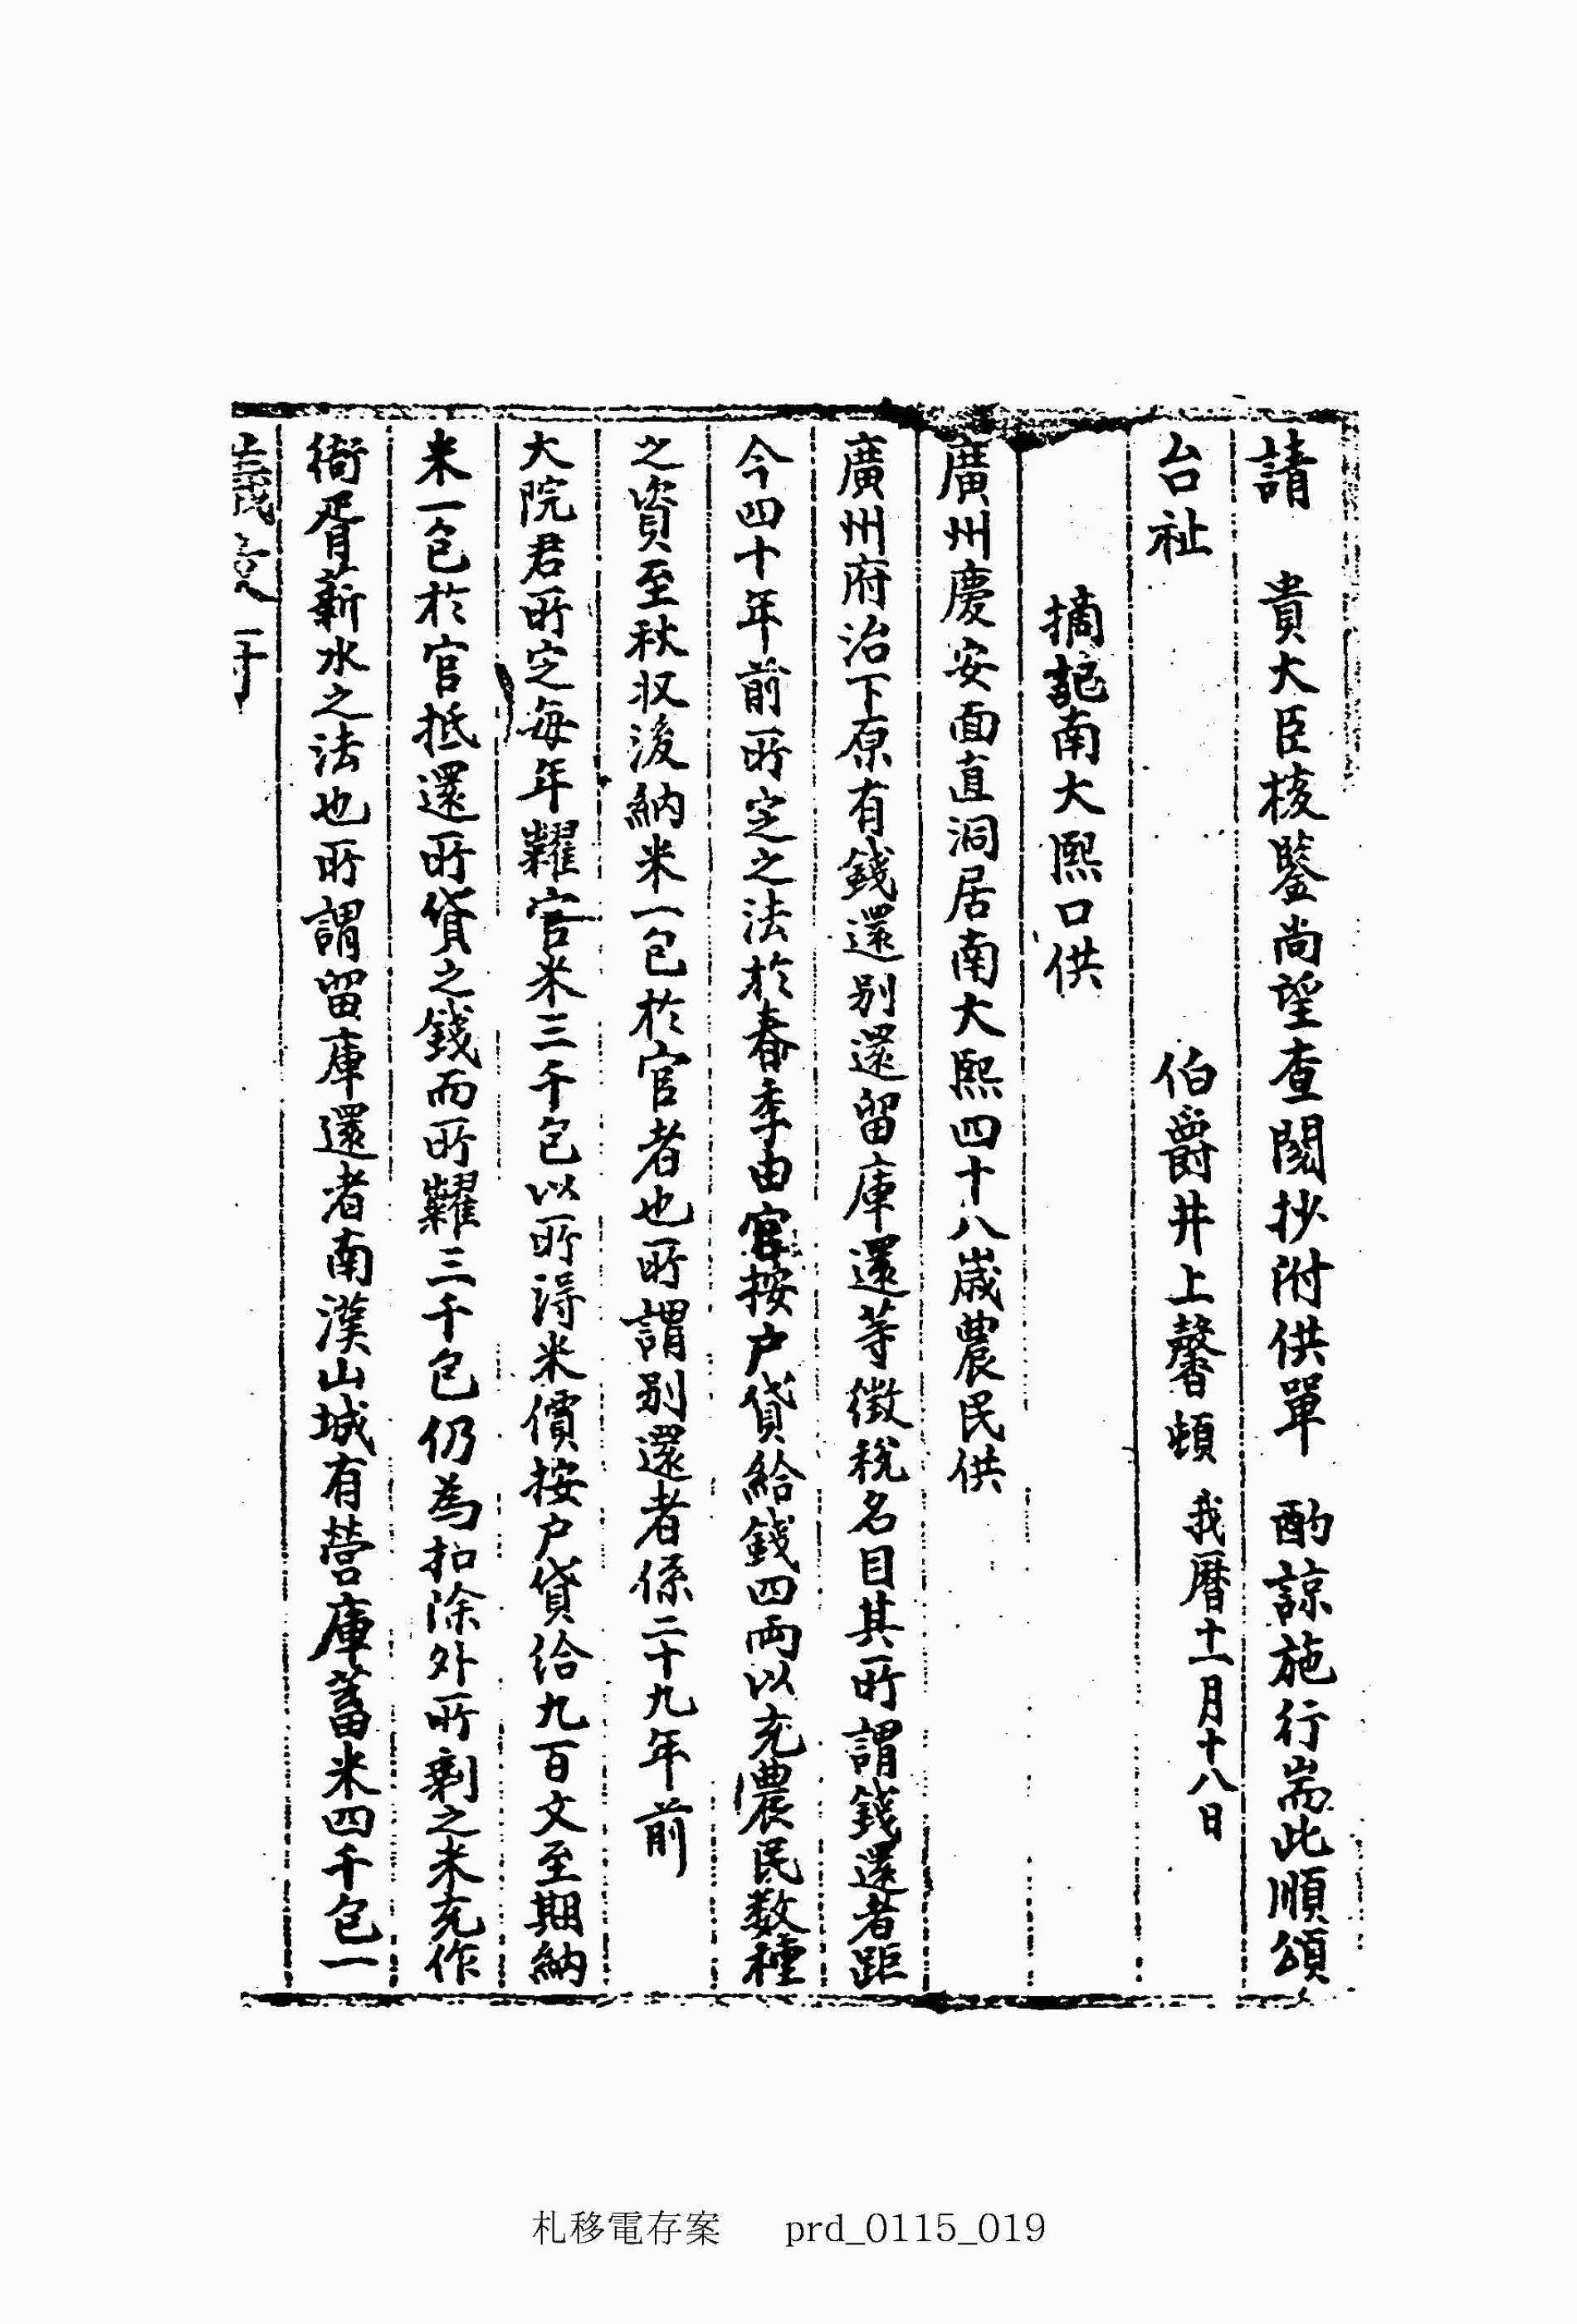 請　貴大臣核鑒尚望查閱抄附供單　酌諒施行耑此順頌
台祉　伯爵井上馨頓　我曆十一月十八日
摘記南大熙口供
廣州慶安面直洞居南大熙四十八歲農民供
廣州府治下原有錢還別還留庫還等徵稅名目其所謂錢還者距
今四十年前所定之法於春季由官按户貸給錢四両以充農民数種
之資至秋収後納米一包於官者也所謂別還者係二十九年前
大院君所定每年糶官米三千包以所得米價按户貸给九百文至期納
米一包於官抵還所貸之錢而所糶三千包仍為扣除外所剩之米充作
衙胥薪水之法也所謂留庫還者南漢山城有營庫蓄米四千包一